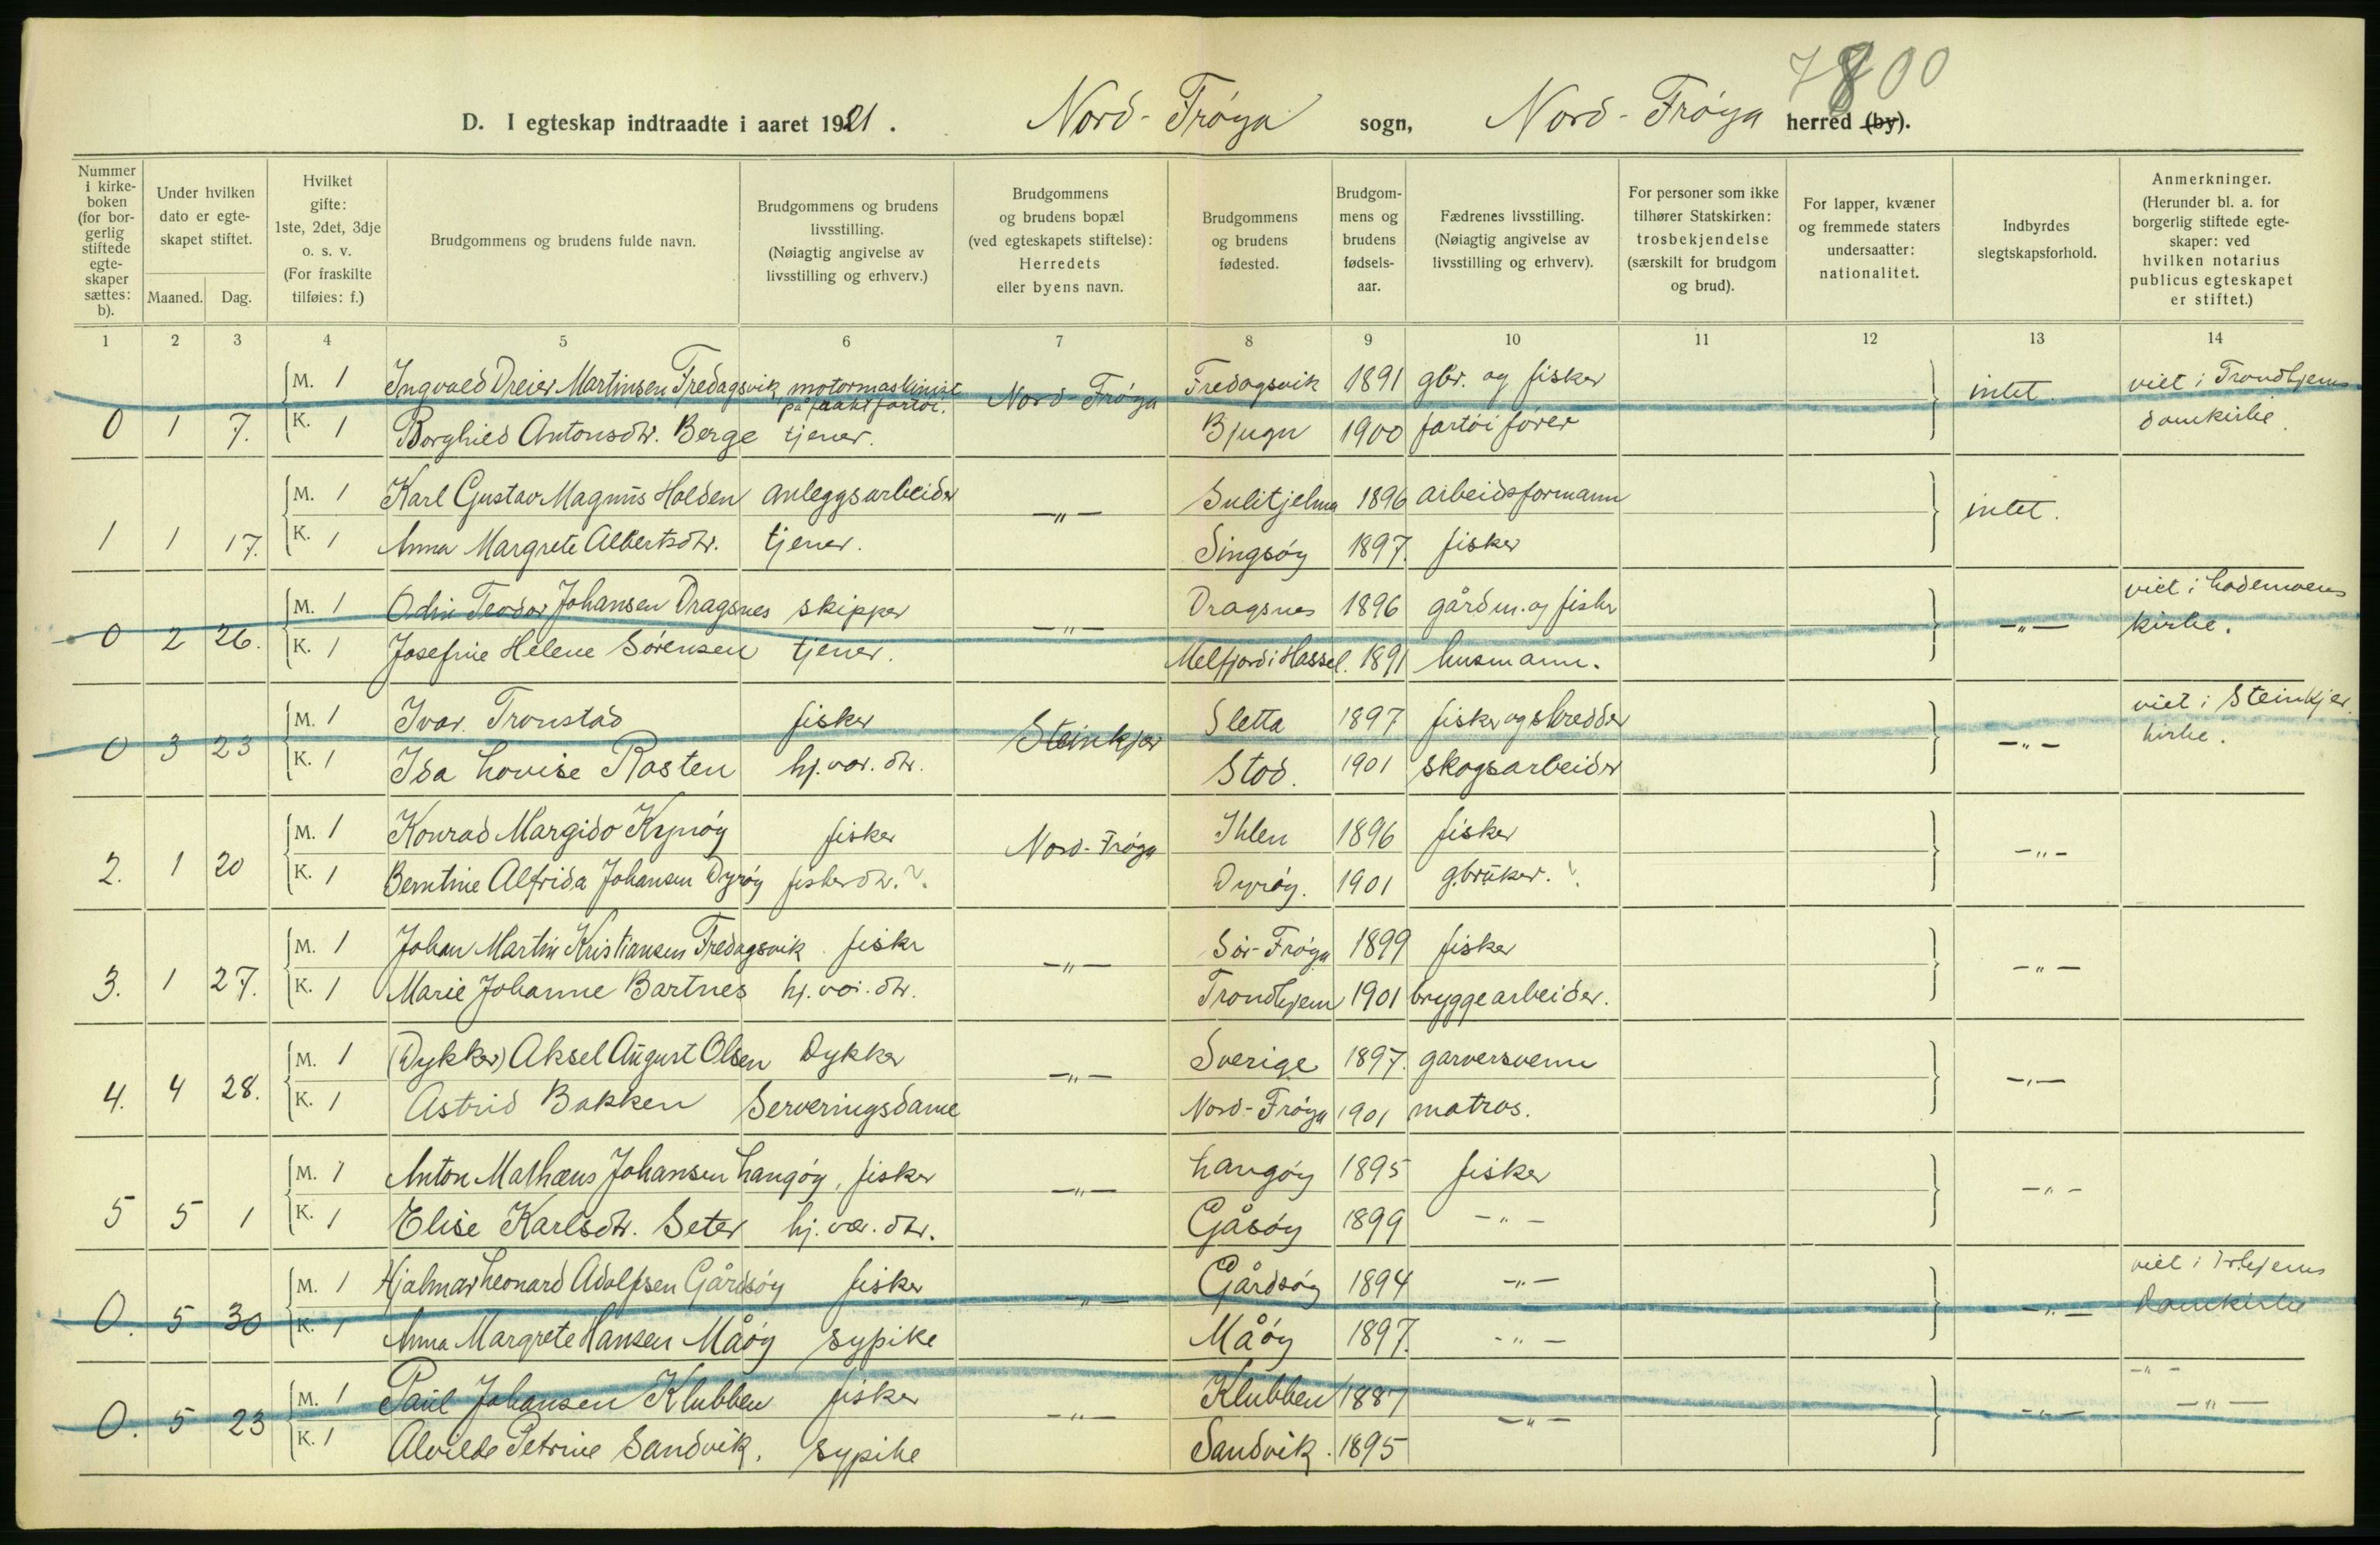 7800
D. I egteskap indtraadte i aaret 1921. Nord-Frøya sogn, Nord-Frøya herred (by).
Nummer i kirkeboken (for borgerlig stiftede egteskaper sættes: b).
Under hvilken dato er egteskapet stiftet.
Maaned. Dag.
Hvilket gifte: 1ste, 2det, 3dje o. s. v. (For fraskilte tilføies: f.)
Brudgommens og brudens fulde navn.
Brudgommens og brudens livsstilling. (Nøiagtig angivelse av livsstilling og erhverv.)
Brudgommens og brudens bopæl (ved egteskapets stiftelse): Herredets eller byens navn.
Brudgommens og brudens fødested.
Brudgommens og brudens fødselsaar.
Fædrenes livsstilling. (Nøiagtig angivelse av livsstilling og erhverv).
For personer som ikke tilhører Statskirken: trosbekjendelse (særskilt for brudgom og brud).
For lapper, kvæner og fremmede staters undersaatter: nationalitet.
Indbyrdes slegtskapsforhold.
Anmerkninger. (Herunder bl. a. for borgerlig stiftede egteskaper: ved hvilken notarius publicus egteskapet er stiftet.)
1 2 3 4 5 6 7 8 9 10 11 12 13 14
M. 1 Ingvald Dreier Martinsen Fredagsvik motormaskinist på fraktfartøi. Nord-Frøya Fredagsvik 1891 gbr. og fisker intet. viet i Trondhjems
0 1 7. K. 1 Borghild Antonsdtr. Berge tjener. Bjugn 1900 fartøifører domkirke.
M. 1 Karl Gustav Magnus Holden anleggsarbeider -"- Sulitjelma 1896 arbeidsformann intet.
1 1 17. K. 1 Anna Margrete Albertsdtr. tjener. Singsøy 1897. fisker
M. 1 Odin Teodor Johansen Dragsnes skipper -"- Dragsnes 1896 gårdm. og fisker -"- viet i Lademoens
0 2 26. K. 1 Josefine Helene Sørensen tjener. Melfjord i Hassel. 1891 husmann. kirke.
M. 1 Ivar Tronstad fisker Steinkjer Sletta 1897 fisker og skredder -"- viet i Steinkjer
0 3 23 K. 1 Ida Lovise Rosten hj.vær.dtr. Stod. 1901 skogsarbeider kirke.
M. 1 Konrad Margido Kynøy fisker Nord-Frøya Ihlen 1896 fisker -"-
2. 1 20 K. 1 Berntine Alfrida Johansen Dyrøy fiskerdtr.?. Dyrøy. 1901 g.bruker. ?
M. 1 Johan Martin Kristiansen Fredagsvik fisker -"- Sør-Frøya 1899 fisker -"-
3. 1 27. K. 1 Marie Johanne Bartnes hj.vær.dtr. Trondhjem 1901 bryggearbeider.
M. 1 (Dykker) Aksel August Olsen Dykker -"- Sverige 1897. garversvenn -"-
4. 4 28. K. 1 Astrid Bakken Serveringsdame Nord-Frøya 1901 matros.
M. 1 Anton Mathæus Johansen Langøy, fisker -"- Langøy 1895 fisker -"-
5 5 1 K. 1 Elise Karlsdtr. Seter hj.vær.dtr. Gåsøy 1899 -"-
M. 1 Hjalmar Leonard Adolfsen Gårdsøy fisker -"- Gårdsøy 1894 -"- -"- viet i Tr.hjems
0. 5 30 K. 1 Anna Margrete Hansen Måøy sypike Måøy 1897. -"- Domkirke
M. 1 Paul Johansen Klubben fisker -"- Klubben 1887 -"- -"- -"- -"-
0. 5 23 K. 1 Alvilde Petrine Sandvik. sypike Sandvik. 1895